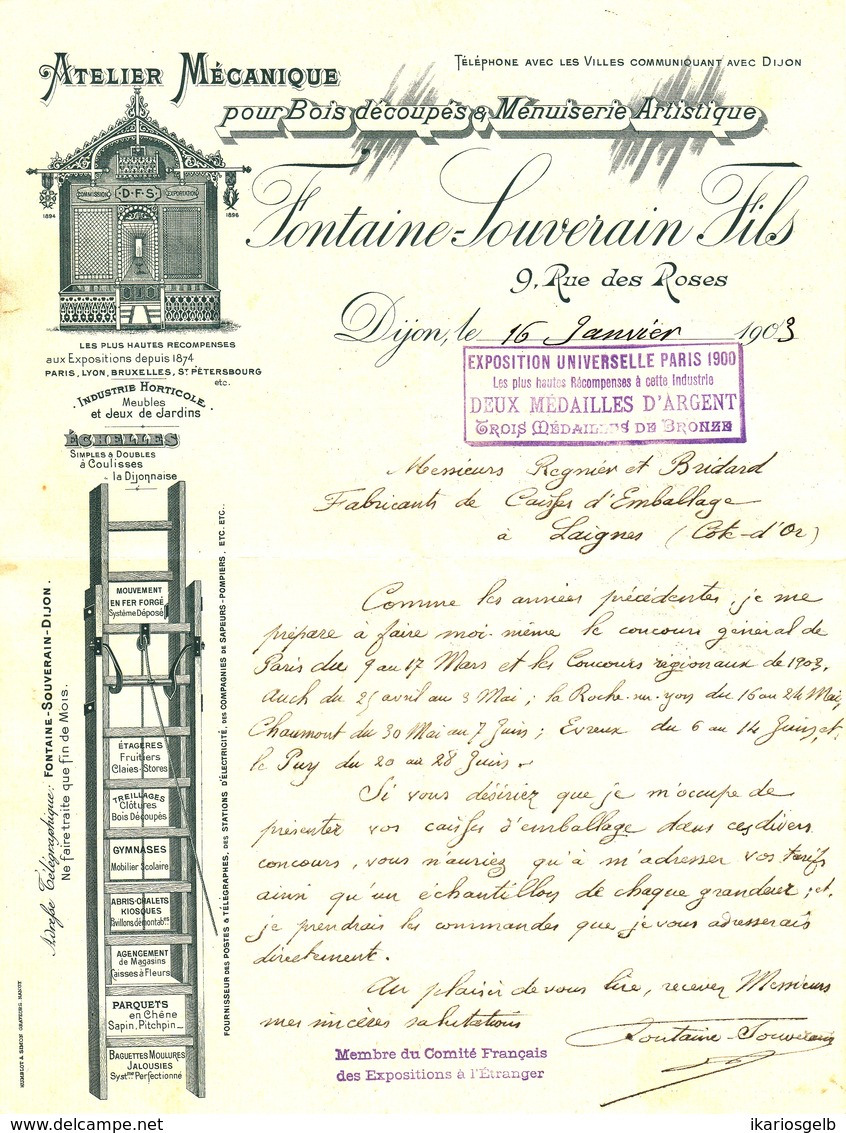 ATELIER MÉCANIQUE
TÉLÉPHONE AVEC LES VILLES COMMUNIQUANT AVEC DIJON
pour Bois découpés & Ménuiserie Artistique
Fontaine-Souverain Fils
9, Rue des Roses
COMMISSION D.F.S. EXPORTATION
1894 1896
Dijon, le 16 Janvier 1903
LES PLUS HAUTES RECOMPENSES
aux Expositions depuis 1874
PARIS, LYON, BRUXELLES, ST PÉTERSBOURG
etc.
INDUSTRIE HORTICOLE.
Meubles
et Jeux de Jardins
ÉCHELLES
SIMPLES & DOUBLES
à Coulisses
la Dijonnaise
EXPOSITION UNIVERSELLE PARIS 1900
Les plus hautes Récompenses à cette Industrie
DEUX MÉDAILLES D'ARGENT
TROIS MÉDAILLES DE BRONZE
Messieurs Regnier et Bridard
Fabricants de Caisses d'Emballage
à Laignes (Côte-d'Or)
Comme les années précédentes je me
prépare à faire moi-même le concours général de
Paris du 9 au 17 Mars et les Concours regionaux de 1903,
Auch du 25 avril au 3 Mai ; la Roche-sur-yon du 16 au 24 Mai,
Chaumont du 30 Mai au 7 Juin ; Evreux du 6 au 14 Juin, et
le Puy du 20 au 28 Juin.
Si vous désiriez que je m'occupe de
présenter vos caisses d'emballage dans ces divers
concours, vous n'auriez qu'à m'adresser vos tarifs
ainsi qu'un échantillon de chaque grandeur ; et
je prendrais les commandes que je vous adresserais
directement.
Au plaisir de vous lire, recevez Messieurs
mes sincères salutations
Fontaine-Souverain
Membre du Comité Français
des Expositions à l'Étranger
MOUVEMENT
EN FER FORGÉ
Système Déposé
ÉTAGÈRES
Fruitiers
Claies-Stores
TREILLAGES
Clôtures
Bois Découpés
GYMNASES
Mobilier Scolaire
ABRIS-CHALETS
KIOSQUES
Pavillons démontables
AGENCEMENT
de Magasins
Caisses à Fleurs
PARQUETS
en Chêne
Sapin, Pitchpin
BAGUETTES MOULURES
JALOUSIES
Systme Perfectionné
Adresse Télégraphique: FONTAINE-SOUVERAIN-DIJON.
Ne faire traite que fin de Mois.
FOURNISSEUR DES POSTES & TÉLÉGRAPHES, DES STATIONS D'ÉLECTRICITÉ, DES COMPAGNIES DE SAPEURS-POMPIERS, ETC. ETC.
HUMBLOT & SIMON GRAVEURS, NANCY
delcampe.net
ikariosgelb